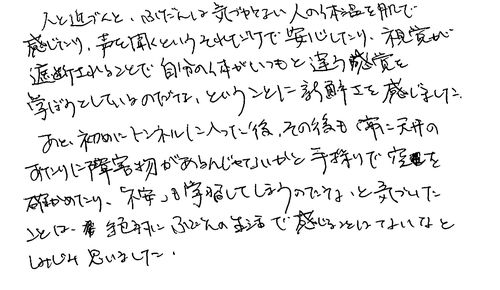 人と近づくと、ふだんは気づかない人の体温を肌で
感じたり、声を聞くというそれだけで安心したり、視覚が
遮断されることで自分の体がいつもと違う感覚を
学ぼうとしているのだな、ということに新鮮さを感じました。
あと、初めにトンネルに入った後、その後も常に天井の
あたりに障害物があるんじゃないかと手探りで空間を
確かめたり、「不安」も学習してしまうのだな、と気づいた
ことは、絶対にふだんの生活で感じることはないなと
しみじみ思いました。